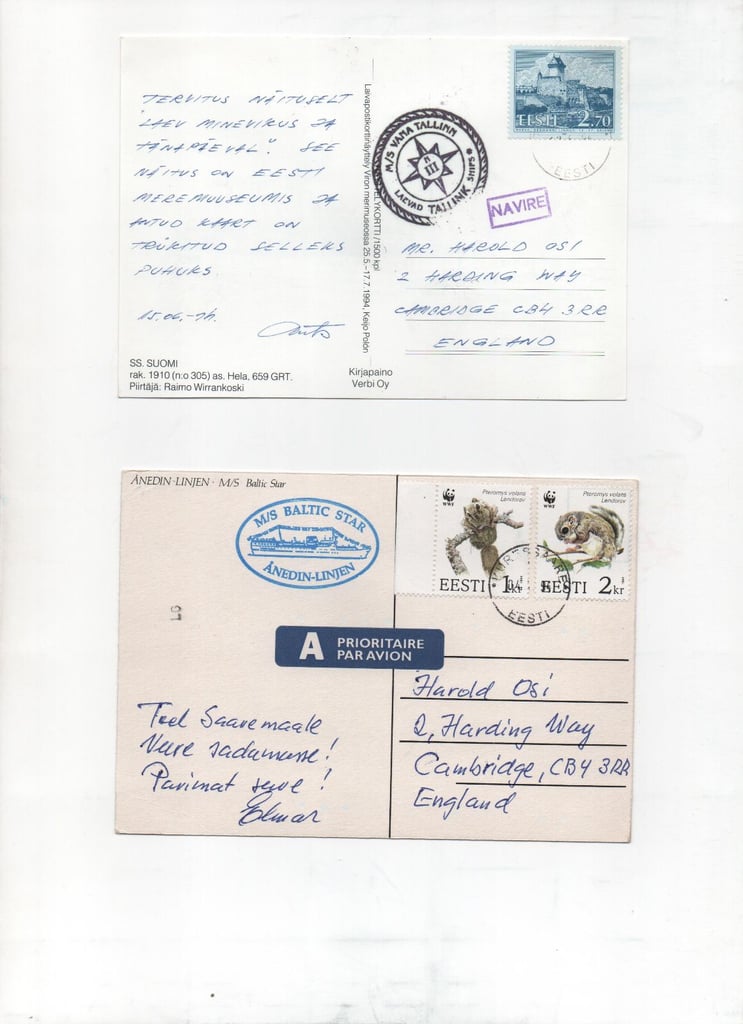 TERVITUS NÄITUSELT
"LAEV MINEVIKUS JA
TÄNAPÄEVAL". SEE
NÄITUS ON EESTI
MEREMUUSEUMIS JA
ANTUD KAART ON
TRÜKITUD SELLEKS
PUHUKS
15.06.-94.
Ants
SS. SUOMI
rak. 1910 (n:o 305) as. Hela, 659 GRT.
Piirtäjä: Raimo Wirrankoski
Laivapostikorttinäyttely Viron merimuseossa 25.5–17.7.1994, Keijo Polön
ELYKORTTI /1500 kpl
Kirjapaino
Verbi Oy
M/S VANA TALLINN
III
LAEVAD TALLINK SHIPS
NAVIRE
EESTI 2.70
EESTI
MR. HAROLD OSI
2 HARDING WAY
CAMBRIDGE CB4 3RR
ENGLAND
ÅNEDIN-LINJEN · M/S Baltic Star
M/S BALTIC STAR
ÅNEDIN-LINJEN
Pteromys volans
Lendorav
WWF
EESTI 1kr
Pteromys volans
Lendorav
WWF
EESTI 2kr
KURESSAARE
EESTI
A PRIORITAIRE
PAR AVION
Teel Saaremaale
Veere sadamasse!
Parimat soove!
Elmar
Harold Osi
2, Harding Way
Cambridge, CB4 3RR
England